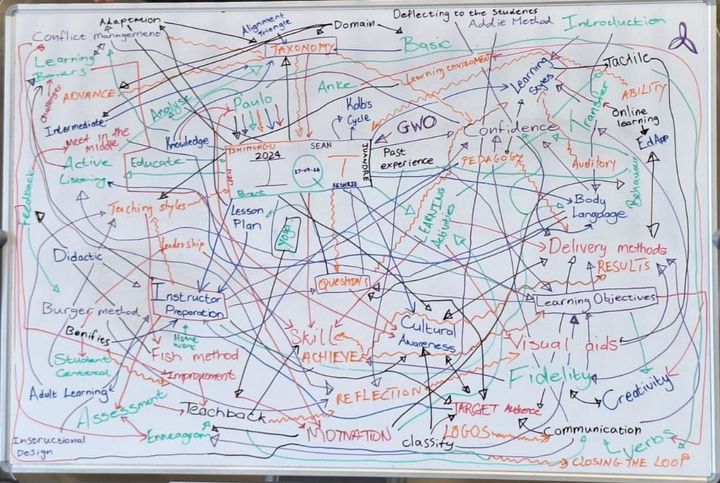 Adaptation
Conflict management
Alignment
Triangle
Domain
Deflecting to the students
Addie Method
Introduction
TAXONOMY
Basic
Learning
Challenges
ADVANCE
Analyse
Paulo
Anke
Kolbs
Cycle
Learning
Styles
Tactile
ABILITY
Transfer
Online
learning
EdApp
Intermediate
Meet in the
Middle
Knowledge
GWO
Confidence
Past
experience
PEDAGOGY
Auditory
Behaviour
Active
Listening
Educate
2024
SEAN
Feedback
Teaching styles
Lesson
Plan
LEARNING
Activities
Body
Language
Leadership
Delivery methods
RESULTS
Didactic
Instructor
Preparation
QUESTIONS
Learning Objectives
Burger method
Skill
Cultural
Awareness
Visual aids
Home
work
Student
Centered
Fish method
Improvement
ACHIEVE
Fidelity
Adult Learning
REFLECTION
Creativity
Assessment
Teachback
TARGET Audience
Instructional
Design
Enneagram
MOTIVATION
classify
LOGOS
Communication
Verbs
CLOSING THE LOOP